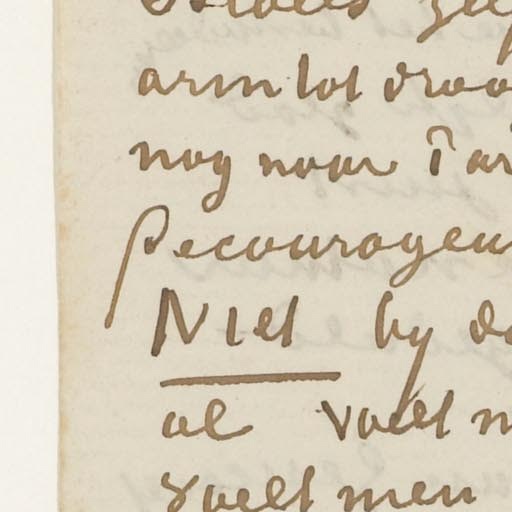 arm lot droo
nog naar I ar
Decourageur
Niet by do
al voelt m
voelt men